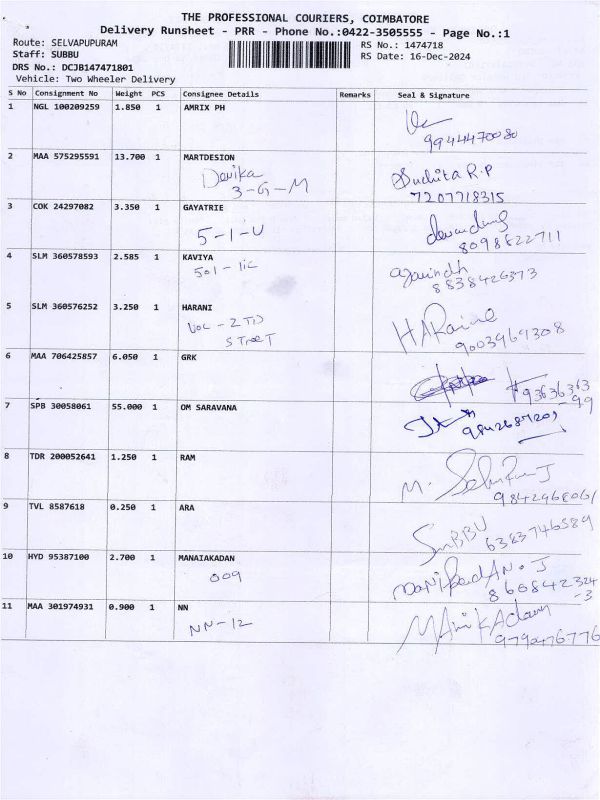 THE PROFESSIONAL COURIERS, COIMBATORE
Delivery Runsheet - PRR - Phone No.:0422-3505555 - Page No.:1
Route: SELVAPUPURAM RS No.: 1474718
Staff: SUBBU RS Date: 16-Dec-2024
DRS No.: DCJB147471801
Vehicle: Two Wheeler Delivery
S No Consignment No Weight PCS Consignee Details Remarks Seal & Signature
1 NGL 100209259 1.850 1 AMRIX PH
9944470080
2 MAA 575295591 13.700 1 MARTDESION
Devika Suchita R.P
3-G-M 7207718315
3 COK 24297082 3.350 1 GAYATRIE
5-1-U
8098822711
4 SLM 360578593 2.585 1 KAVIYA
501-11C
8838426373
5 SLM 360576252 3.250 1 HARANI
VOC - 2TD
STREET 9003969308
6 MAA 706425857 6.050 1 GRK
93636363
-99
7 SPB 30058061 55.000 1 OM SARAVANA
8 TDR 200052641 1.250 1 RAM
9 TVL 8587618 0.250 1 ARA
SUBBU 6383746589
10 HYD 95387100 2.700 1 MANAIAKADAN
009
860842324
-3
11 MAA 301974931 0.900 1 NN
NN-12
9790476776